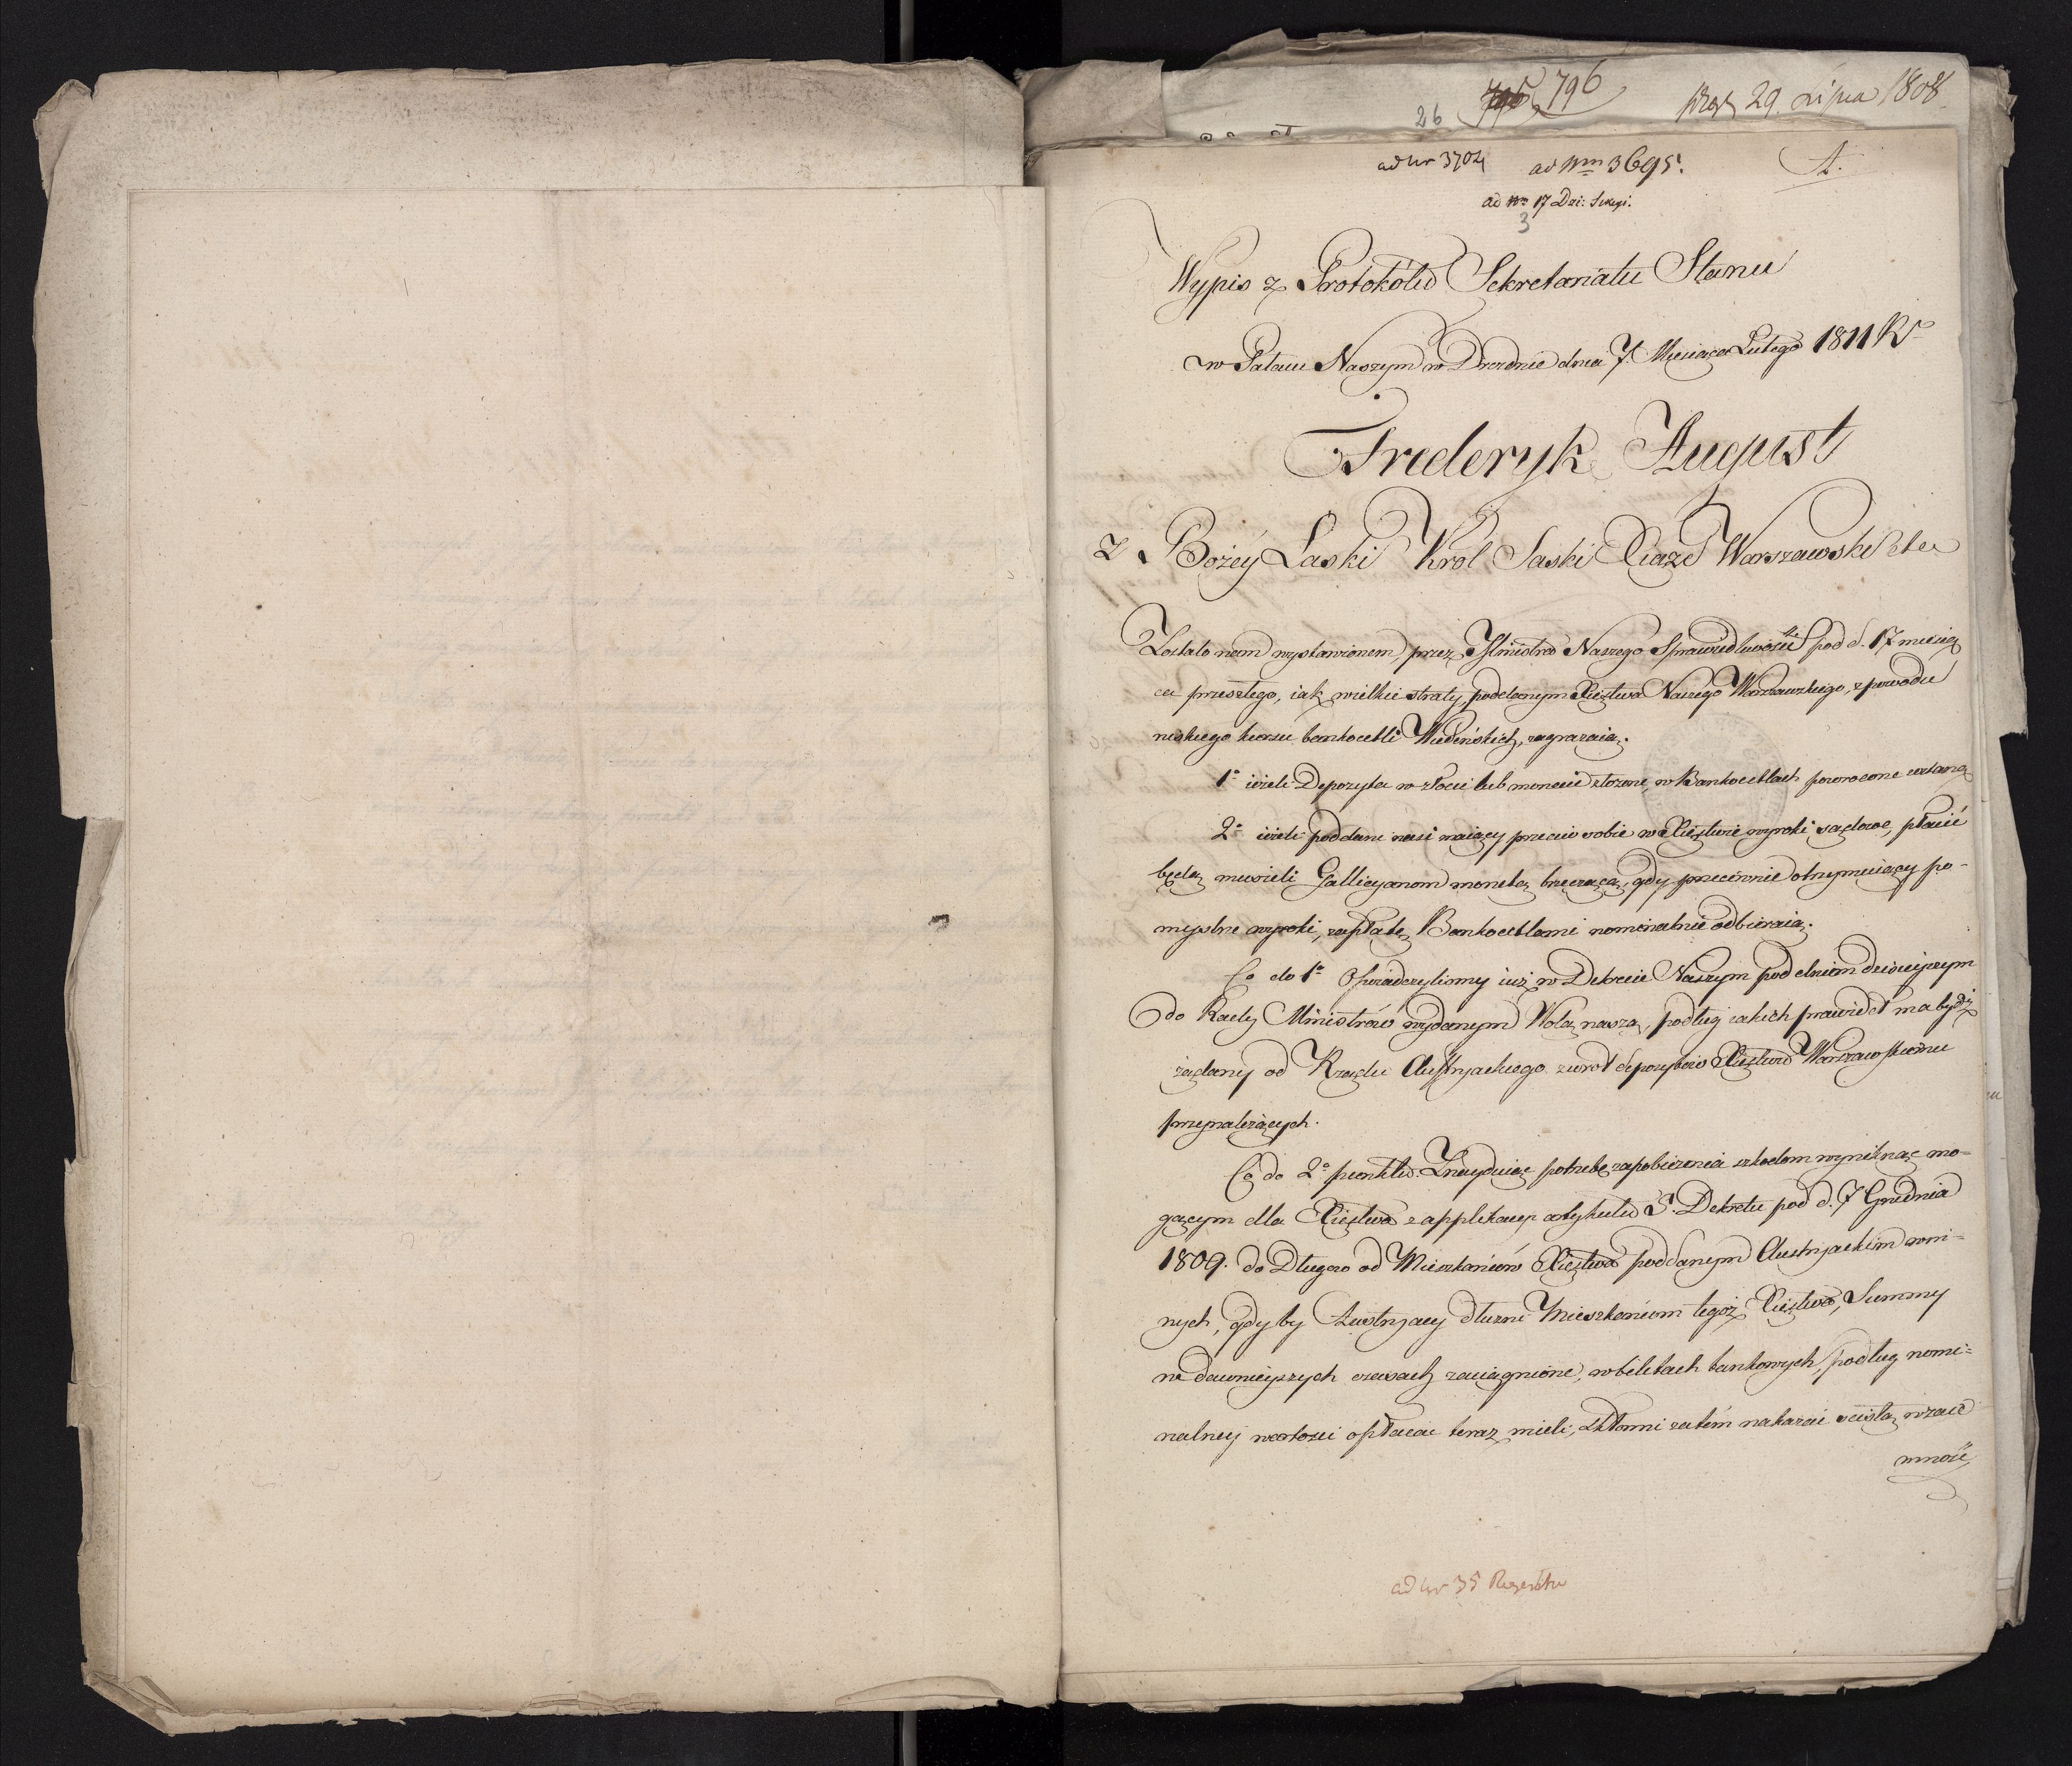 26 796 29. Lipca 1808
ad nr 3704 ad Nrm 3695. A.
ad Nr 17 Dzi: Sekr.
3
Wypis z Protokółu Sekretariatu Stanu
w Pałacu Naszym w Dreźnie dnia 7. Miesiąca Lutego 1811 Ro
Frederyk August
z Bożey Łaski Krol Saski Xiąże Warszawski etc
Zostało nam wystawionem przez Ministra Naszego Sprawiedliwości pod d. 17 miesią
ca przeszłego, iak wielkie straty poddanym Xięstwa Naszego Warszawskiego, z powodu
niskiego kursu bankocetli Wiedeńskich, zagrażaią.
1o ieżeli Depozyta w złocie lub monecie złożone, w Bankocetlach powrocone zostaną
2o ieżeli poddani nasi maiący przeciw sobie w Xięstwie wyroki sądowe, płacić
będą musieli Gallicyanom monetą brzęczącą, gdy przeciwnie otrzymuiący po-
myślne wyroki, zapłatę Bankocetlami nominalnie odbieraią.
Co do 1o Oświadczyliśmy iuż w Dekrecie Naszym pod dniem dzisieyszym
do Rady Ministrów wydanym Wolą naszą, podług iakich prawideł ma bydź
żądany od Rządu Austryackiego zwrot depozytów Xięstwu Warszawskiemu
przynależących.
Co do 2o punktu. Znayduiąc potrzebę zapobieżenia szkodom wyniknąć mo-
gącym dla Xięstwa z applikacyi artykułu 5. Dekretu pod d. 7 Grudnia
1809. do Długów od Mieszkańców Xięstwa poddanym Austryackim win=
nych, gdyby Austryacy dłużni Mieszkańcom tegoż Xięstwa, Summy
w dawnieyszych czasach zaciągnione, w biletach bankowych, podług nomi=
nalney wartości opłacać teraz mieli, skłonni zatém nakazać ścisłą wzaie
mność,
ad nr 35